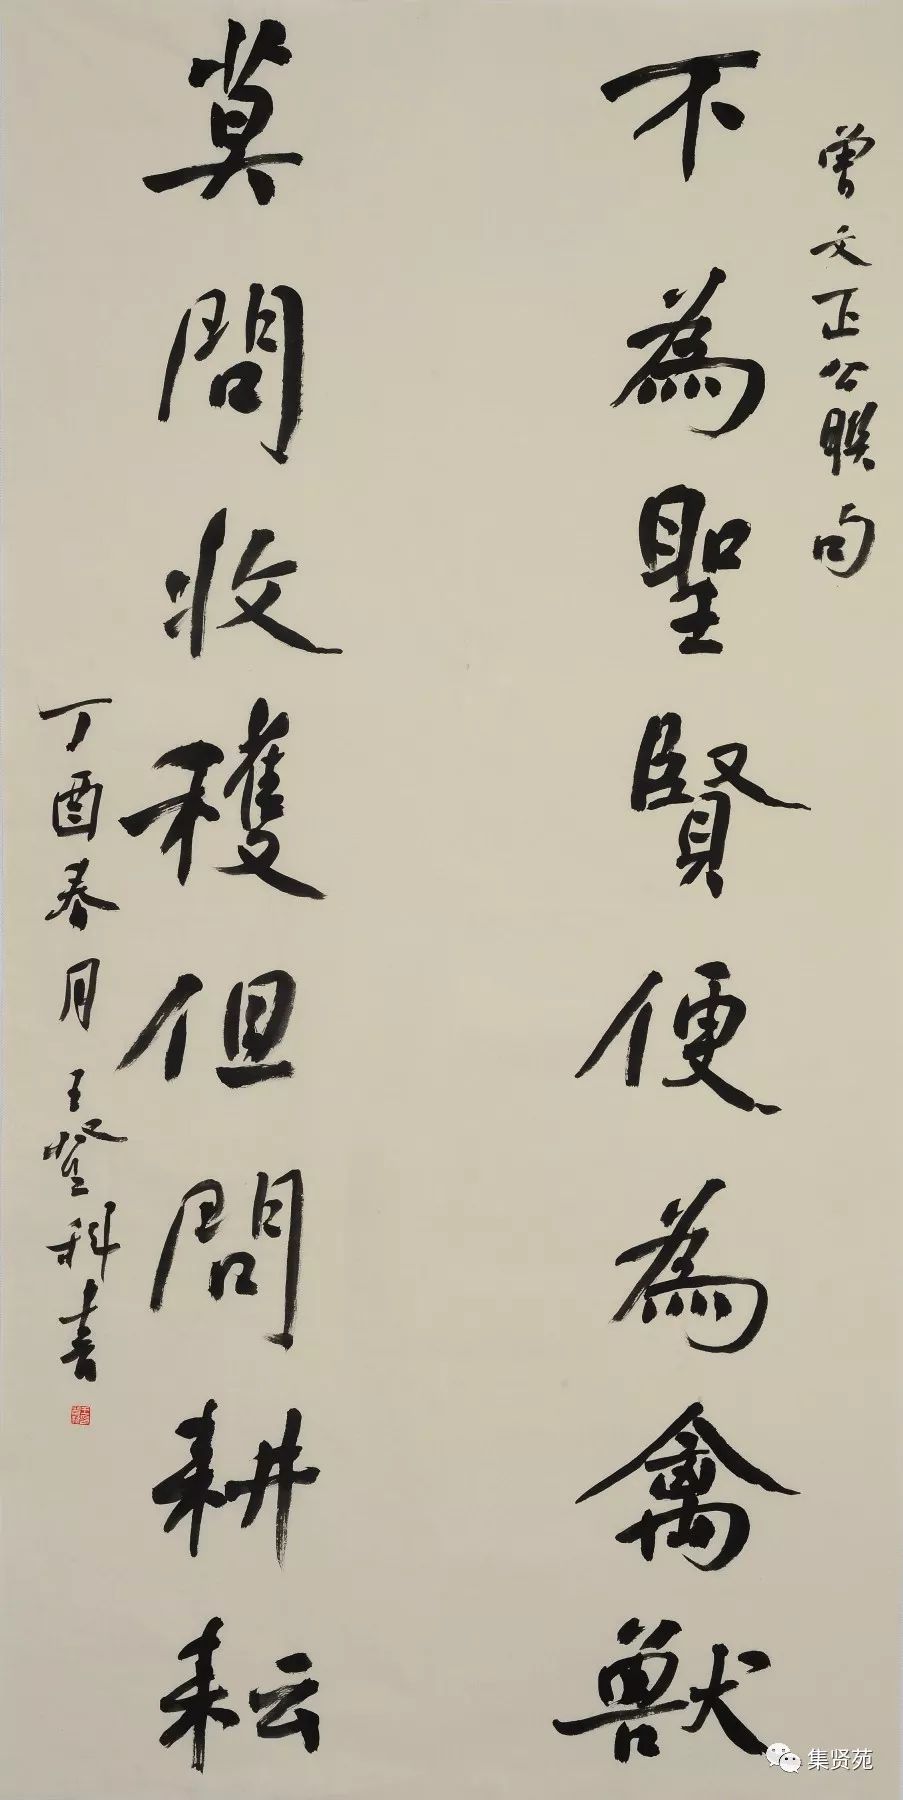 曾文正公联句
不為聖賢便為禽獸
莫問收穫但問耕耘
丁酉春月王登科書
集贤苑